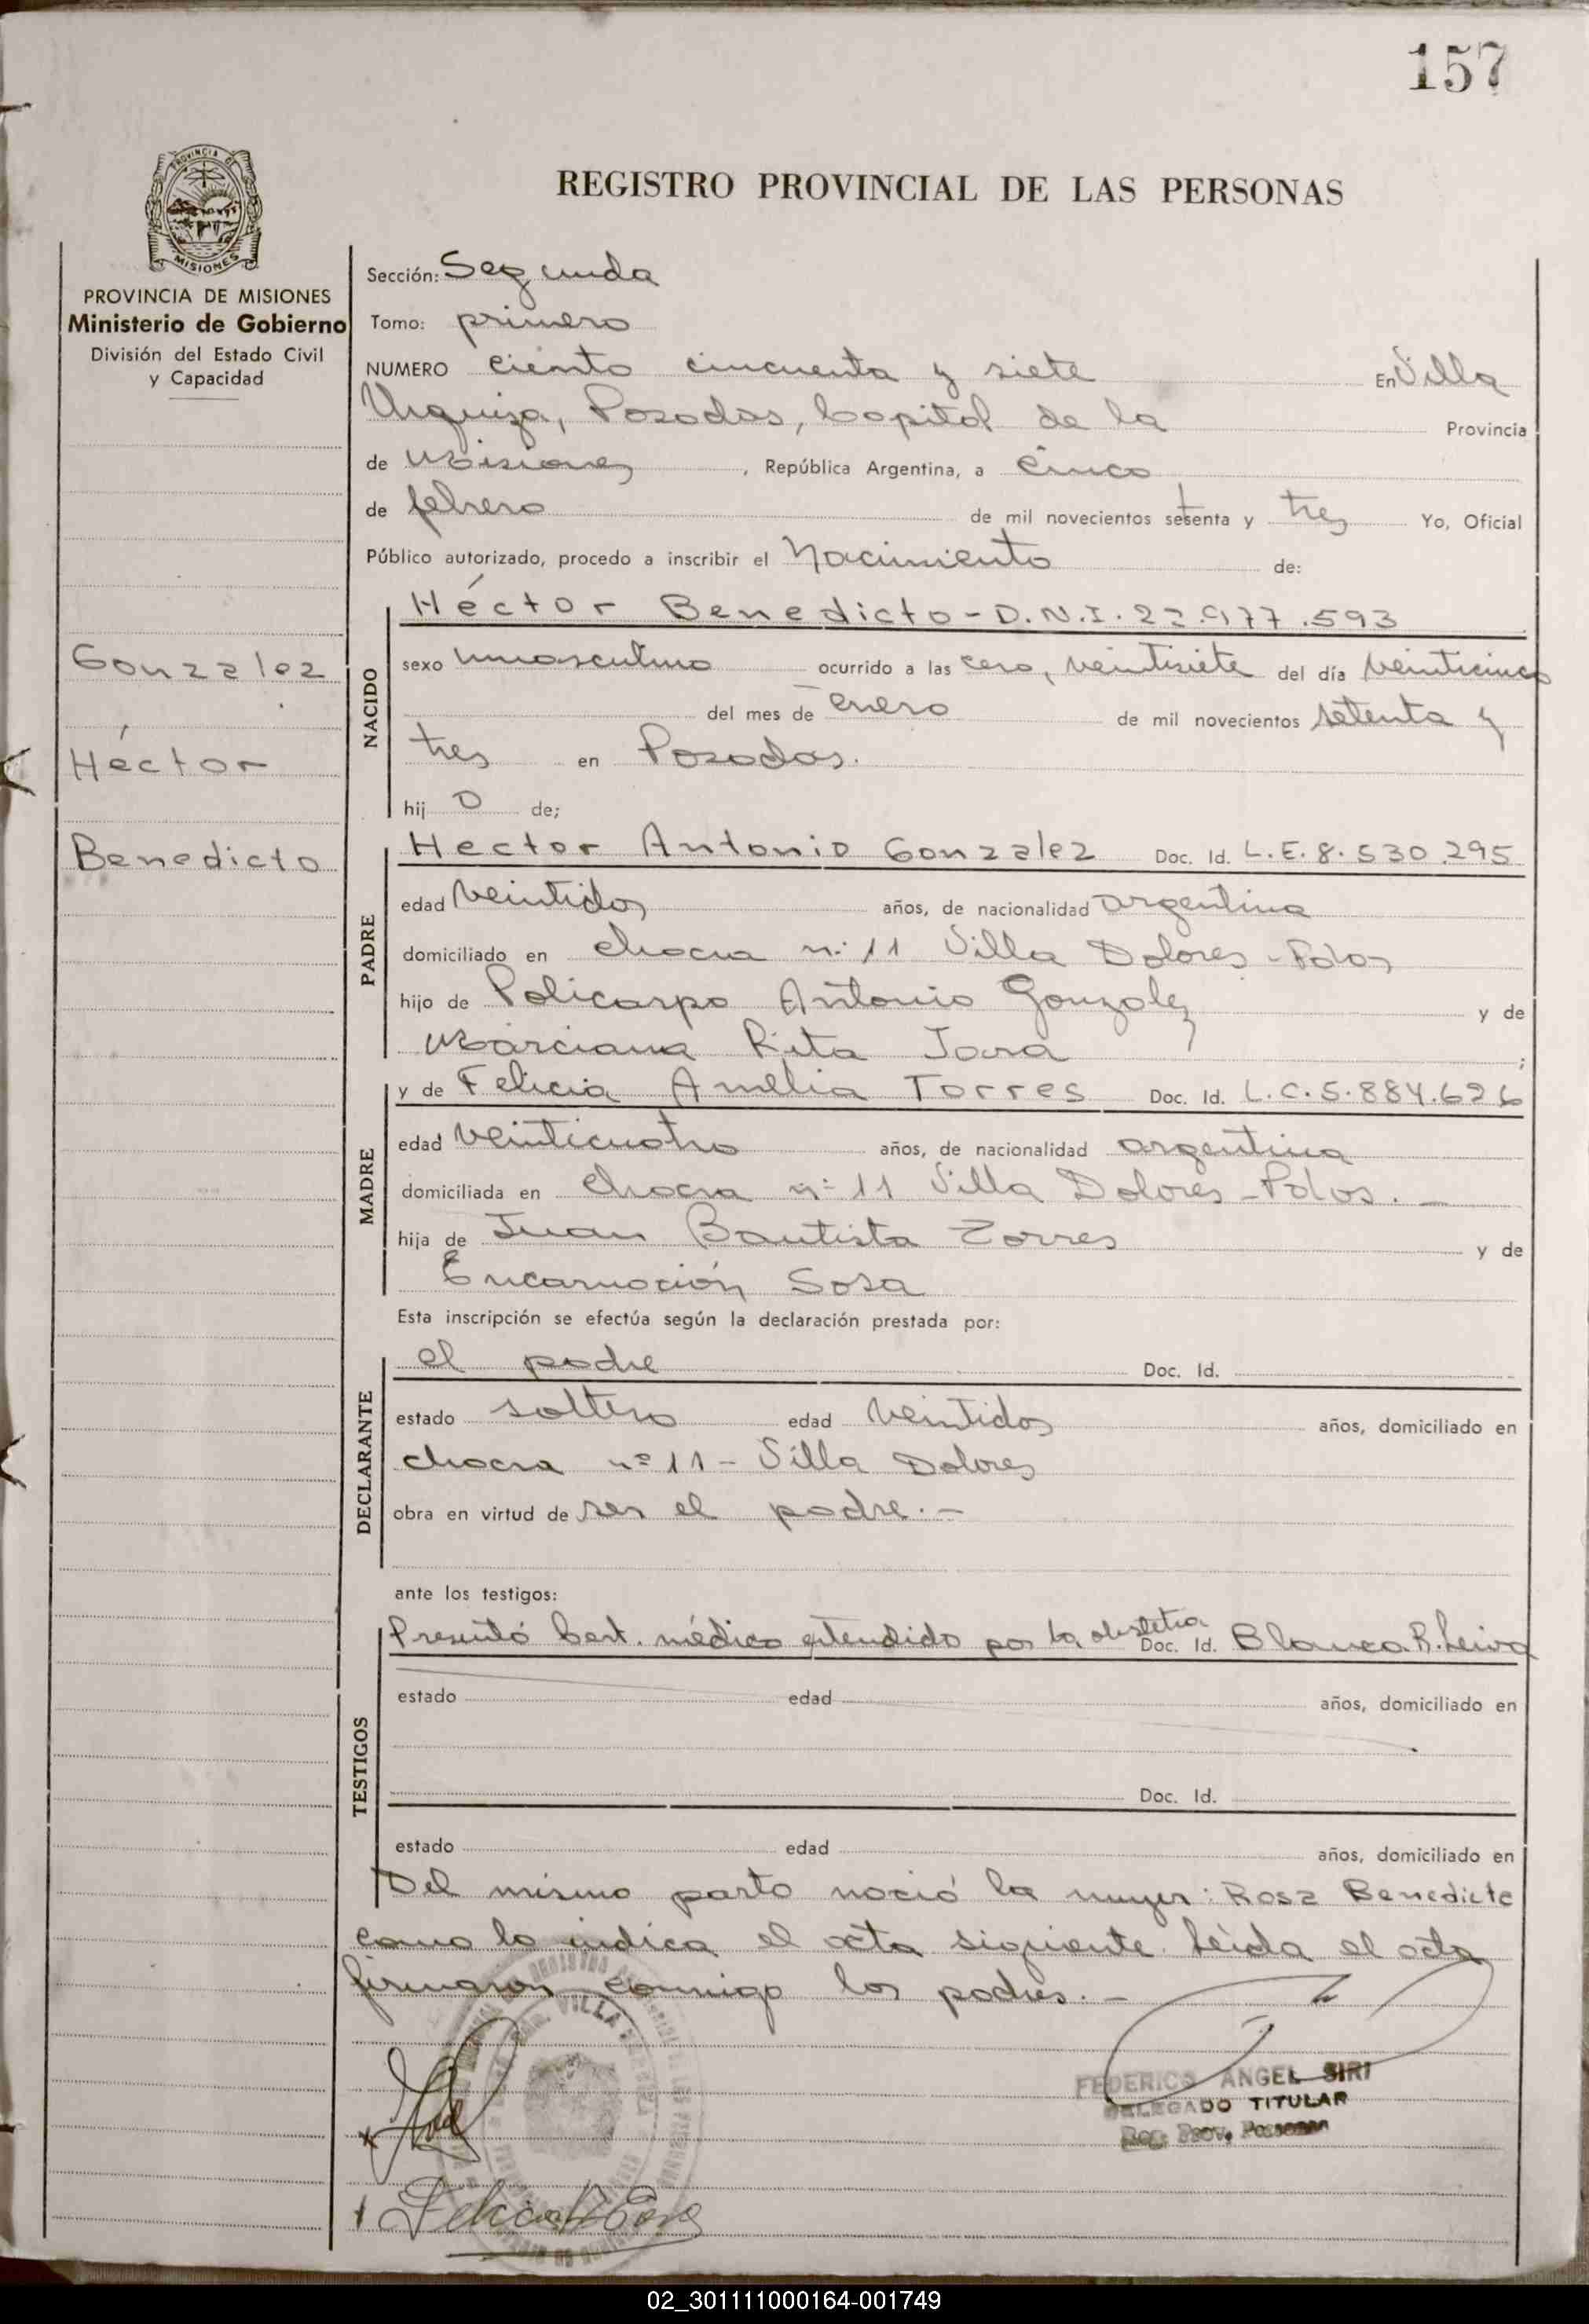 157
PROVINCIA DE
MISIONES
REGISTRO PROVINCIAL DE LAS PERSONAS
PROVINCIA DE MISIONES
Ministerio de Gobierno
División del Estado Civil
y Capacidad
Gonzalez
Héctor
Benedicto
Sección: Segunda
Tomo: primero
NUMERO ciento cincuenta y siete En Villa
Urquiza, Posadas, Capital de la Provincia
de Misiones, República Argentina, a cinco
de febrero de mil novecientos setenta y tres Yo, Oficial
Público autorizado, procedo a inscribir el Nacimiento de:
NACIDO
Héctor Benedicto - D.N.I. 22.977.593
sexo masculino ocurrido a las cero, veintisiete del día veinticinco
del mes de enero de mil novecientos setenta y
tres en Posadas.
hij o de;
PADRE
Hector Antonio Gonzalez Doc. Id. L.E. 8.530.295
edad veintidos años, de nacionalidad argentina
domiciliado en chacra n: 11 Villa Dolores - Pdas
hijo de Policarpo Antonio Gonzalez y de
Marciana Rita Jara ;
MADRE
y de Felicia Amelia Torres Doc. Id. L.C. 5.884.626
edad veinticuatro años, de nacionalidad argentina
domiciliada en chacra n: 11 Villa Dolores - Pdas. -
hija de Juan Bautista Torres y de
Encarnación Sosa
Esta inscripción se efectúa según la declaración prestada por:
DECLARANTE
el padre Doc. Id.
estado soltero edad veintidos años, domiciliado en
chacra nº 11 - Villa Dolores
obra en virtud de ser el padre. -
ante los testigos:
TESTIGOS
Presentó Cert. médico extendido por la obstetra Doc. Id. Blanca R. Leiva
estado edad años, domiciliado en
Doc. Id.
estado edad años, domiciliado en
Del mismo parto nació la mujer: Rosa Benedicta
como lo indica el acta siguiente. Leída el acta
firmaron conmigo los padres. -
VILLA URQUIZA
FEDERICO ANGEL SIRI
DELEGADO TITULAR
Reg. Prov. Personas
02_301111000164-001749